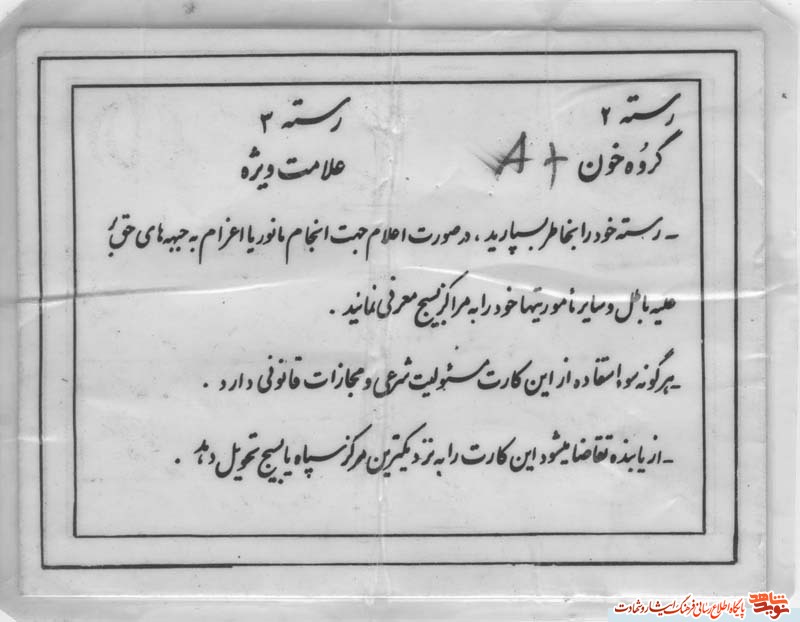 رسته ۲ رسته ۳
گروه خون A+ علامت ویژه
- رسته خود را بخاطر بسپارید ، در صورت اعلام جهت انجام مانور یا اعزام به جبهه های حق بر
علیه باطل و سایر مأموریتها خود را به مراکز بسیج معرفی نمائید .
- هرگونه سوء استفاده از این کارت مسئولیت شرعی و مجازات قانونی دارد .
- از یابنده تقاضا میشود این کارت را به نزدیکترین مرکز سپاه یا بسیج تحویل دهد .
نوید شاهد پایگاه اطلاع رسانی فرهنگ ایثار و شهادت